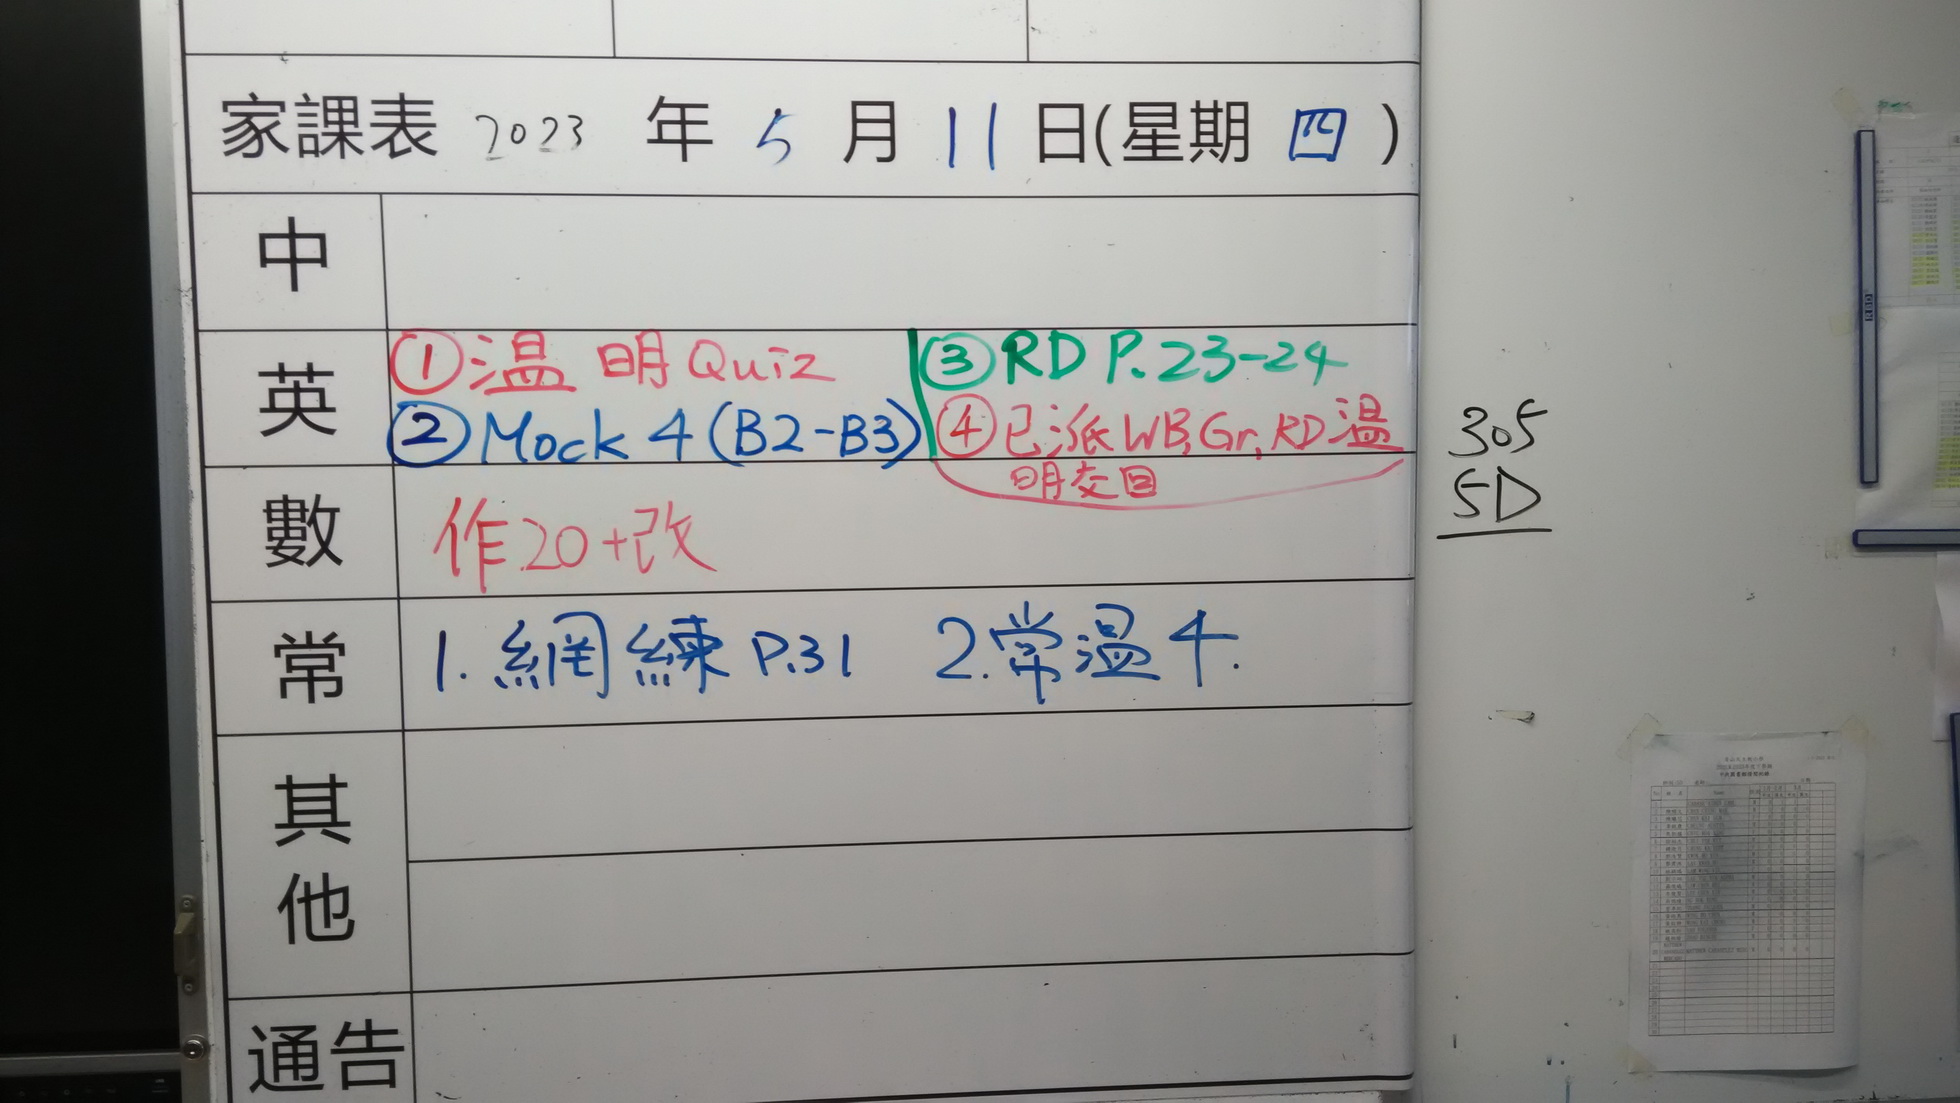 家課表 2023 年 5 月 11 日(星期 四 )
中
英
①温 明Quiz
②Mock 4 (B2-B3)
③RD P.23-24
④已派WB,Gr,RD温
明交回
數
作20+改
常
1. 網練 P.31 2.常温4.
其他
通告
305
5D